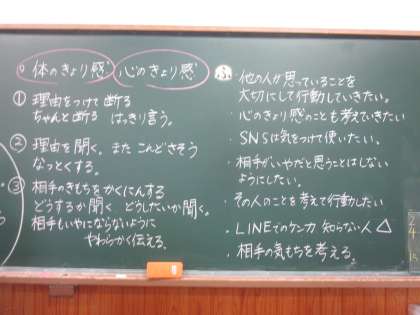 体のきょり感 心のきょり感
① 理由をつけて断る
ちゃんと断る はっきり言う。
② 理由を聞く。また こんどさそう
なっとくする。
③ 相手のきもちをかくにんする
どうするか聞く どうしたいか聞く。
相手もいやにならないように
やわらかく伝える。
ふ
・他の人が思っていることを
大切にして行動していきたい。
・心のきょり感のことも考えていきたい
・SNSは気をつけて使いたい。
・相手がいやだと思うことはしない
ようにしたい。
・その人のことを考えて行動したい
・LINEでのケンカ 知らない人 △
・相手の気もちを考える。